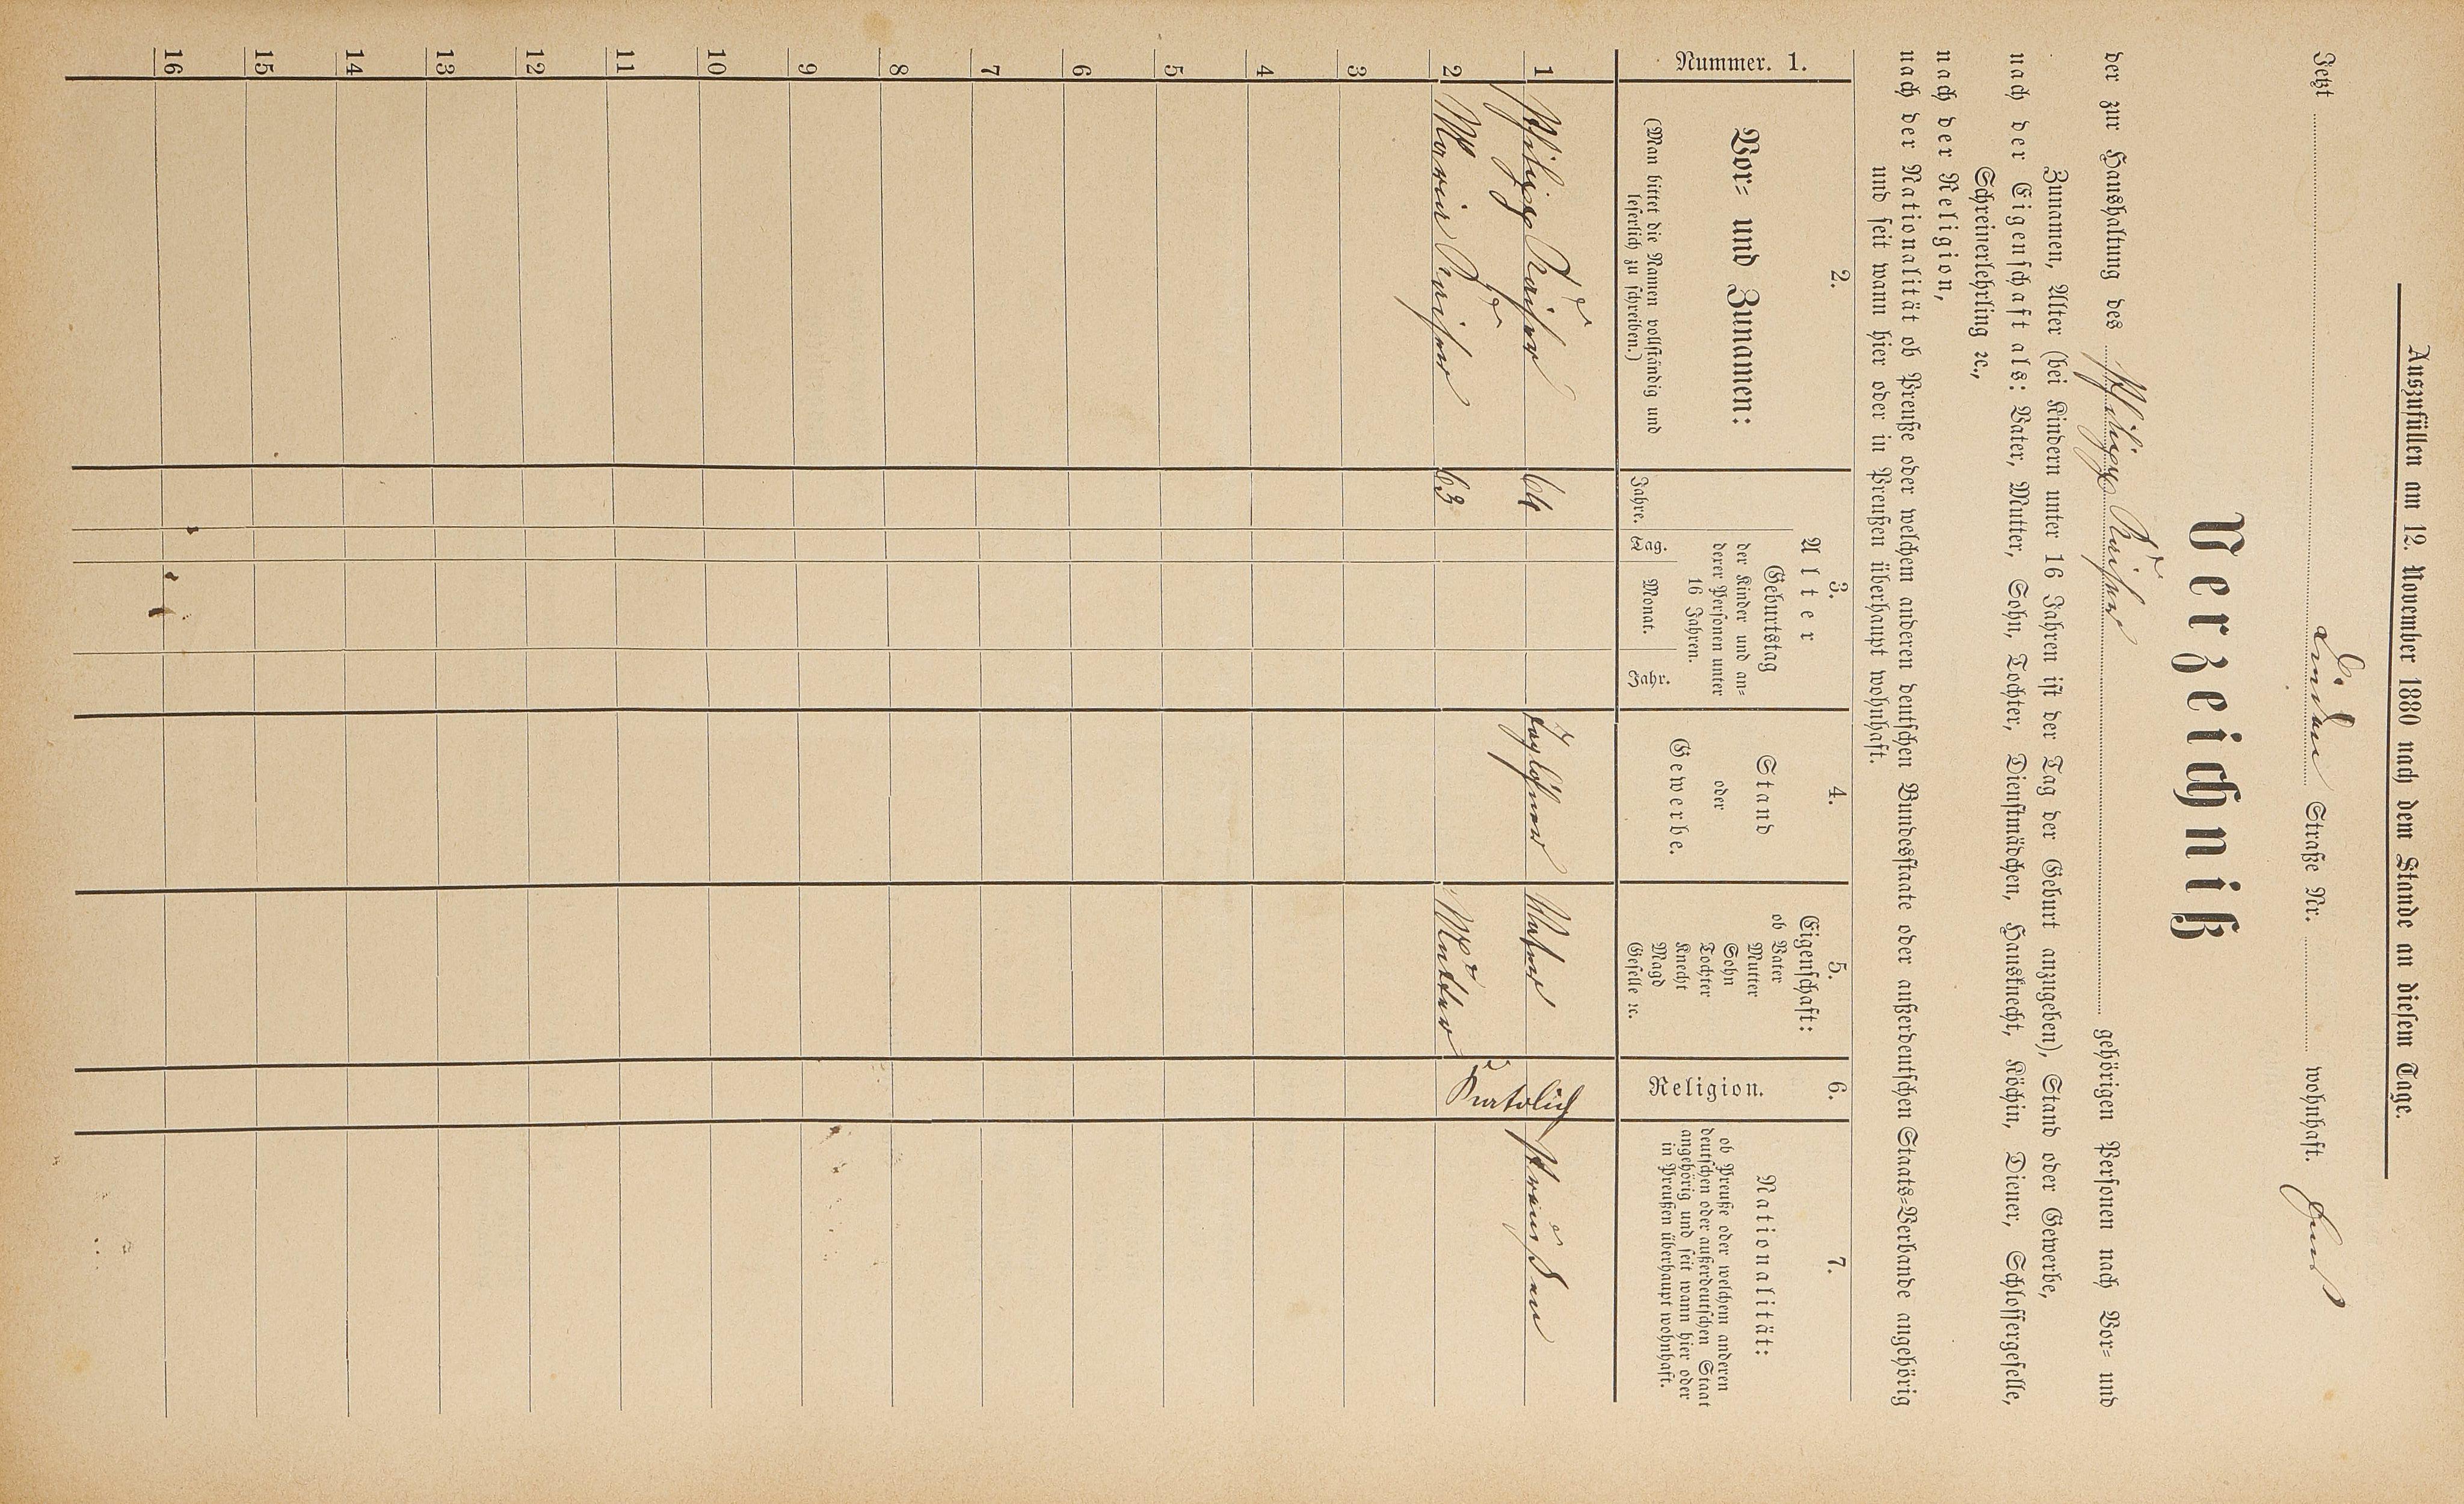 Auszufüllen am 12. November 1880 nach dem Stande an diesem Tage.
Jetzt Linden Straße Nr. wohnhaft.
Verzeichniß
der zur Haushaltung des Philipp Kaiser gehörigen Personen nach Vor- und
Zunamen, Alter (bei Kindern unter 16 Jahren ist der Tag der Geburt anzugeben), Stand oder Gewerbe,
nach der Eigenschaft als: Vater, Mutter, Sohn, Tochter, Dienstmädchen, Hausknecht, Köchin, Diener, Schlossergeselle,
Schreinerlehrling ꝛc.,
nach der Religion,
nach der Nationalität ob Preuße oder welchem anderen deutschen Bundesstaate oder außerdeutschen Staats-Verbande angehörig
und seit wann hier oder in Preußen überhaupt wohnhaft.
Nummer. 1.
2.
Vor- und Zunamen:
(Man bittet die Namen vollständig und
leserlich zu schreiben.)
3.
Alter
Jahre.
Geburtstag
der Kinder und an-
derer Personen unter
16 Jahren.
Tag. Monat. Jahr.
4.
Stand
oder
Gewerbe.
5.
Eigenschaft:
ob Vater
Mutter
Sohn
Tochter
Knecht
Magd
Geselle ꝛc.
6.
Religion.
7.
Nationalität:
ob Preuße oder welchem anderen
deutschen oder außerdeutschen Staat
angehörig und seit wann hier oder
in Preußen überhaupt wohnhaft.
1 Philipp Kaiser 64 Taglöhner Vater Katolich Preußen
2 Maria Kaiser 63 Mutter
3
4
5
6
7
8
9
10
11
12
13
14
15
16